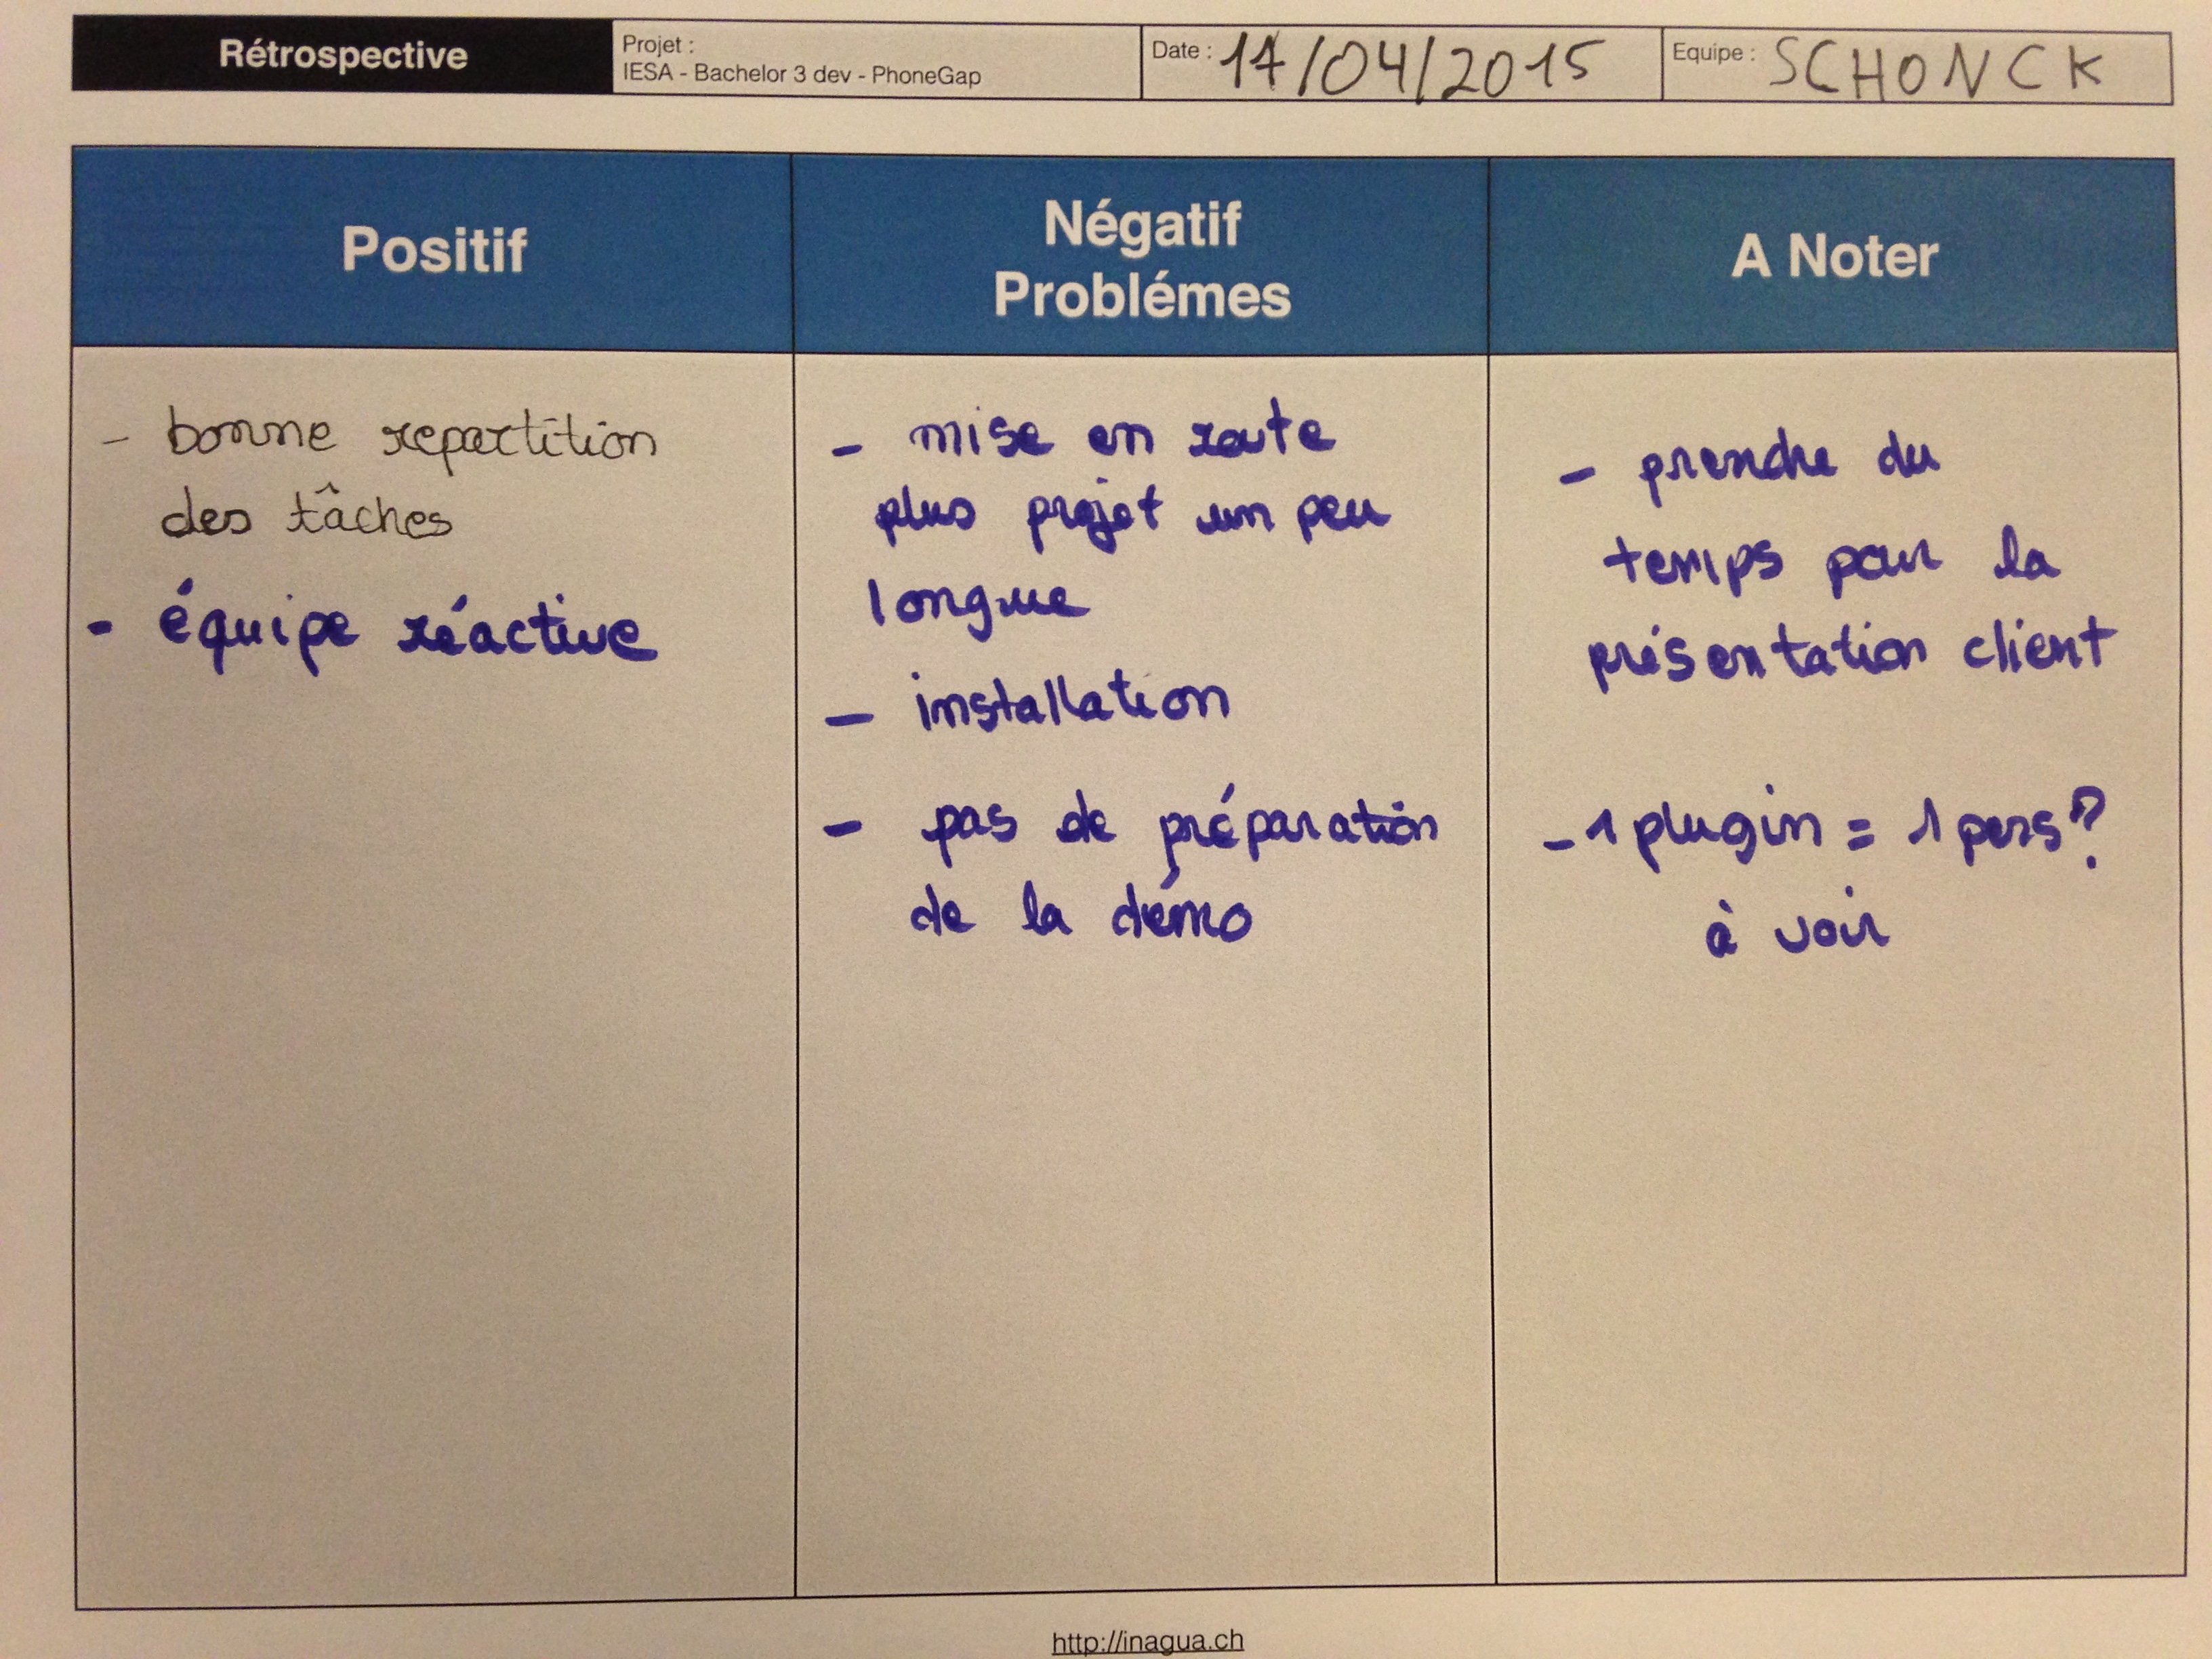 Rétrospective
Projet :
IESA - Bachelor 3 dev - PhoneGap
Date : 17/04/2015
Equipe : SCHONCK
Positif
- bonne repartition
des tâches
- équipe réactive
Négatif
Problémes
- mise en route
plus projet un peu
longue
- installation
- pas de préparation
de la démo
A Noter
- prendre du
temps pour la
présentation client
- 1 plugin = 1 pers ?
à voir
http://inagua.ch